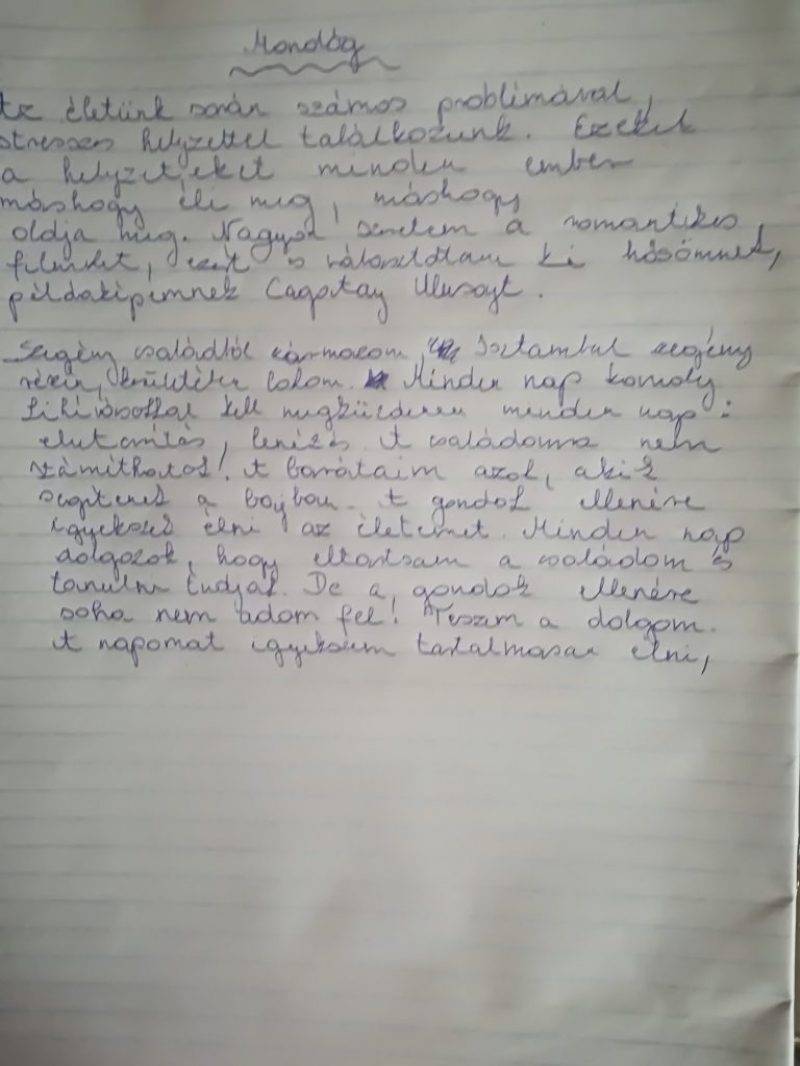 Az életünk során számos problémával,
stresszes helyzettel találkozunk. Ezeket
a helyzeteket minden ember
máshogy éli meg, máshogy
oldja meg. Nagyon szeretem a romantikus
filmeket, ezért is választottam ki hősömnek,
példaképemnek Cagatay Ulusoyt.
Szegény családból származom, Isztambul szegény
részén, lakom. Minden nap komoly
kell megküzdenem minden nap:
elutasítás, lenézés. A családomra nem
számíthatok! A barátaim azok, akik
segítenek a bajban. A gondok ellenére
igyekszek élni az életemet. Minden nap
dolgozok, hogy eltartsam a családom és
tanulni tudjak. De a gondok ellenére
soha nem adom fel! Teszem a dolgom.
A napomat igyekszem tartalmasan élni,